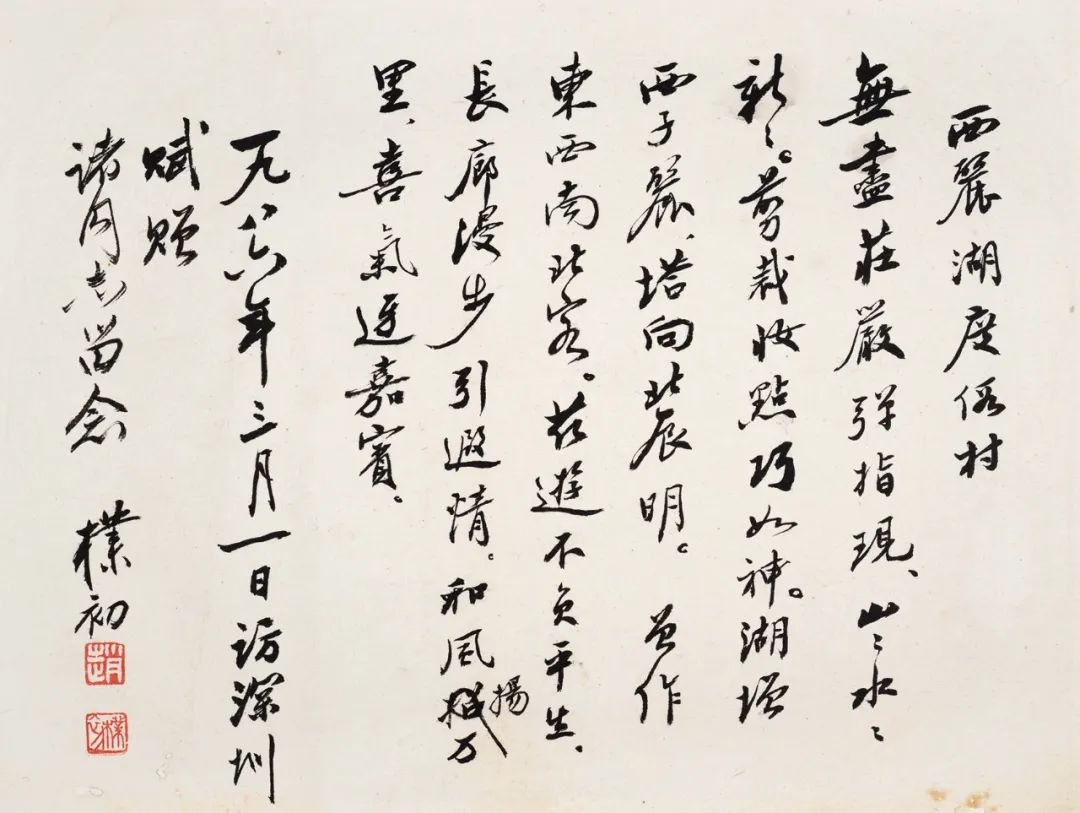 西麗湖度假村
無盡莊嚴彈指現、山〻水〻
新〻。剪裁妝點巧如神。湖增
西子麗、塔向北辰明。 曾作
東西南北客。茲遊不負平生、
長廊漫步引遐情。和風揚万
里、喜氣迓嘉賓。
一九八六年三月一日訪深圳
賦贈
諸同志留念 樸初
趙
樸初